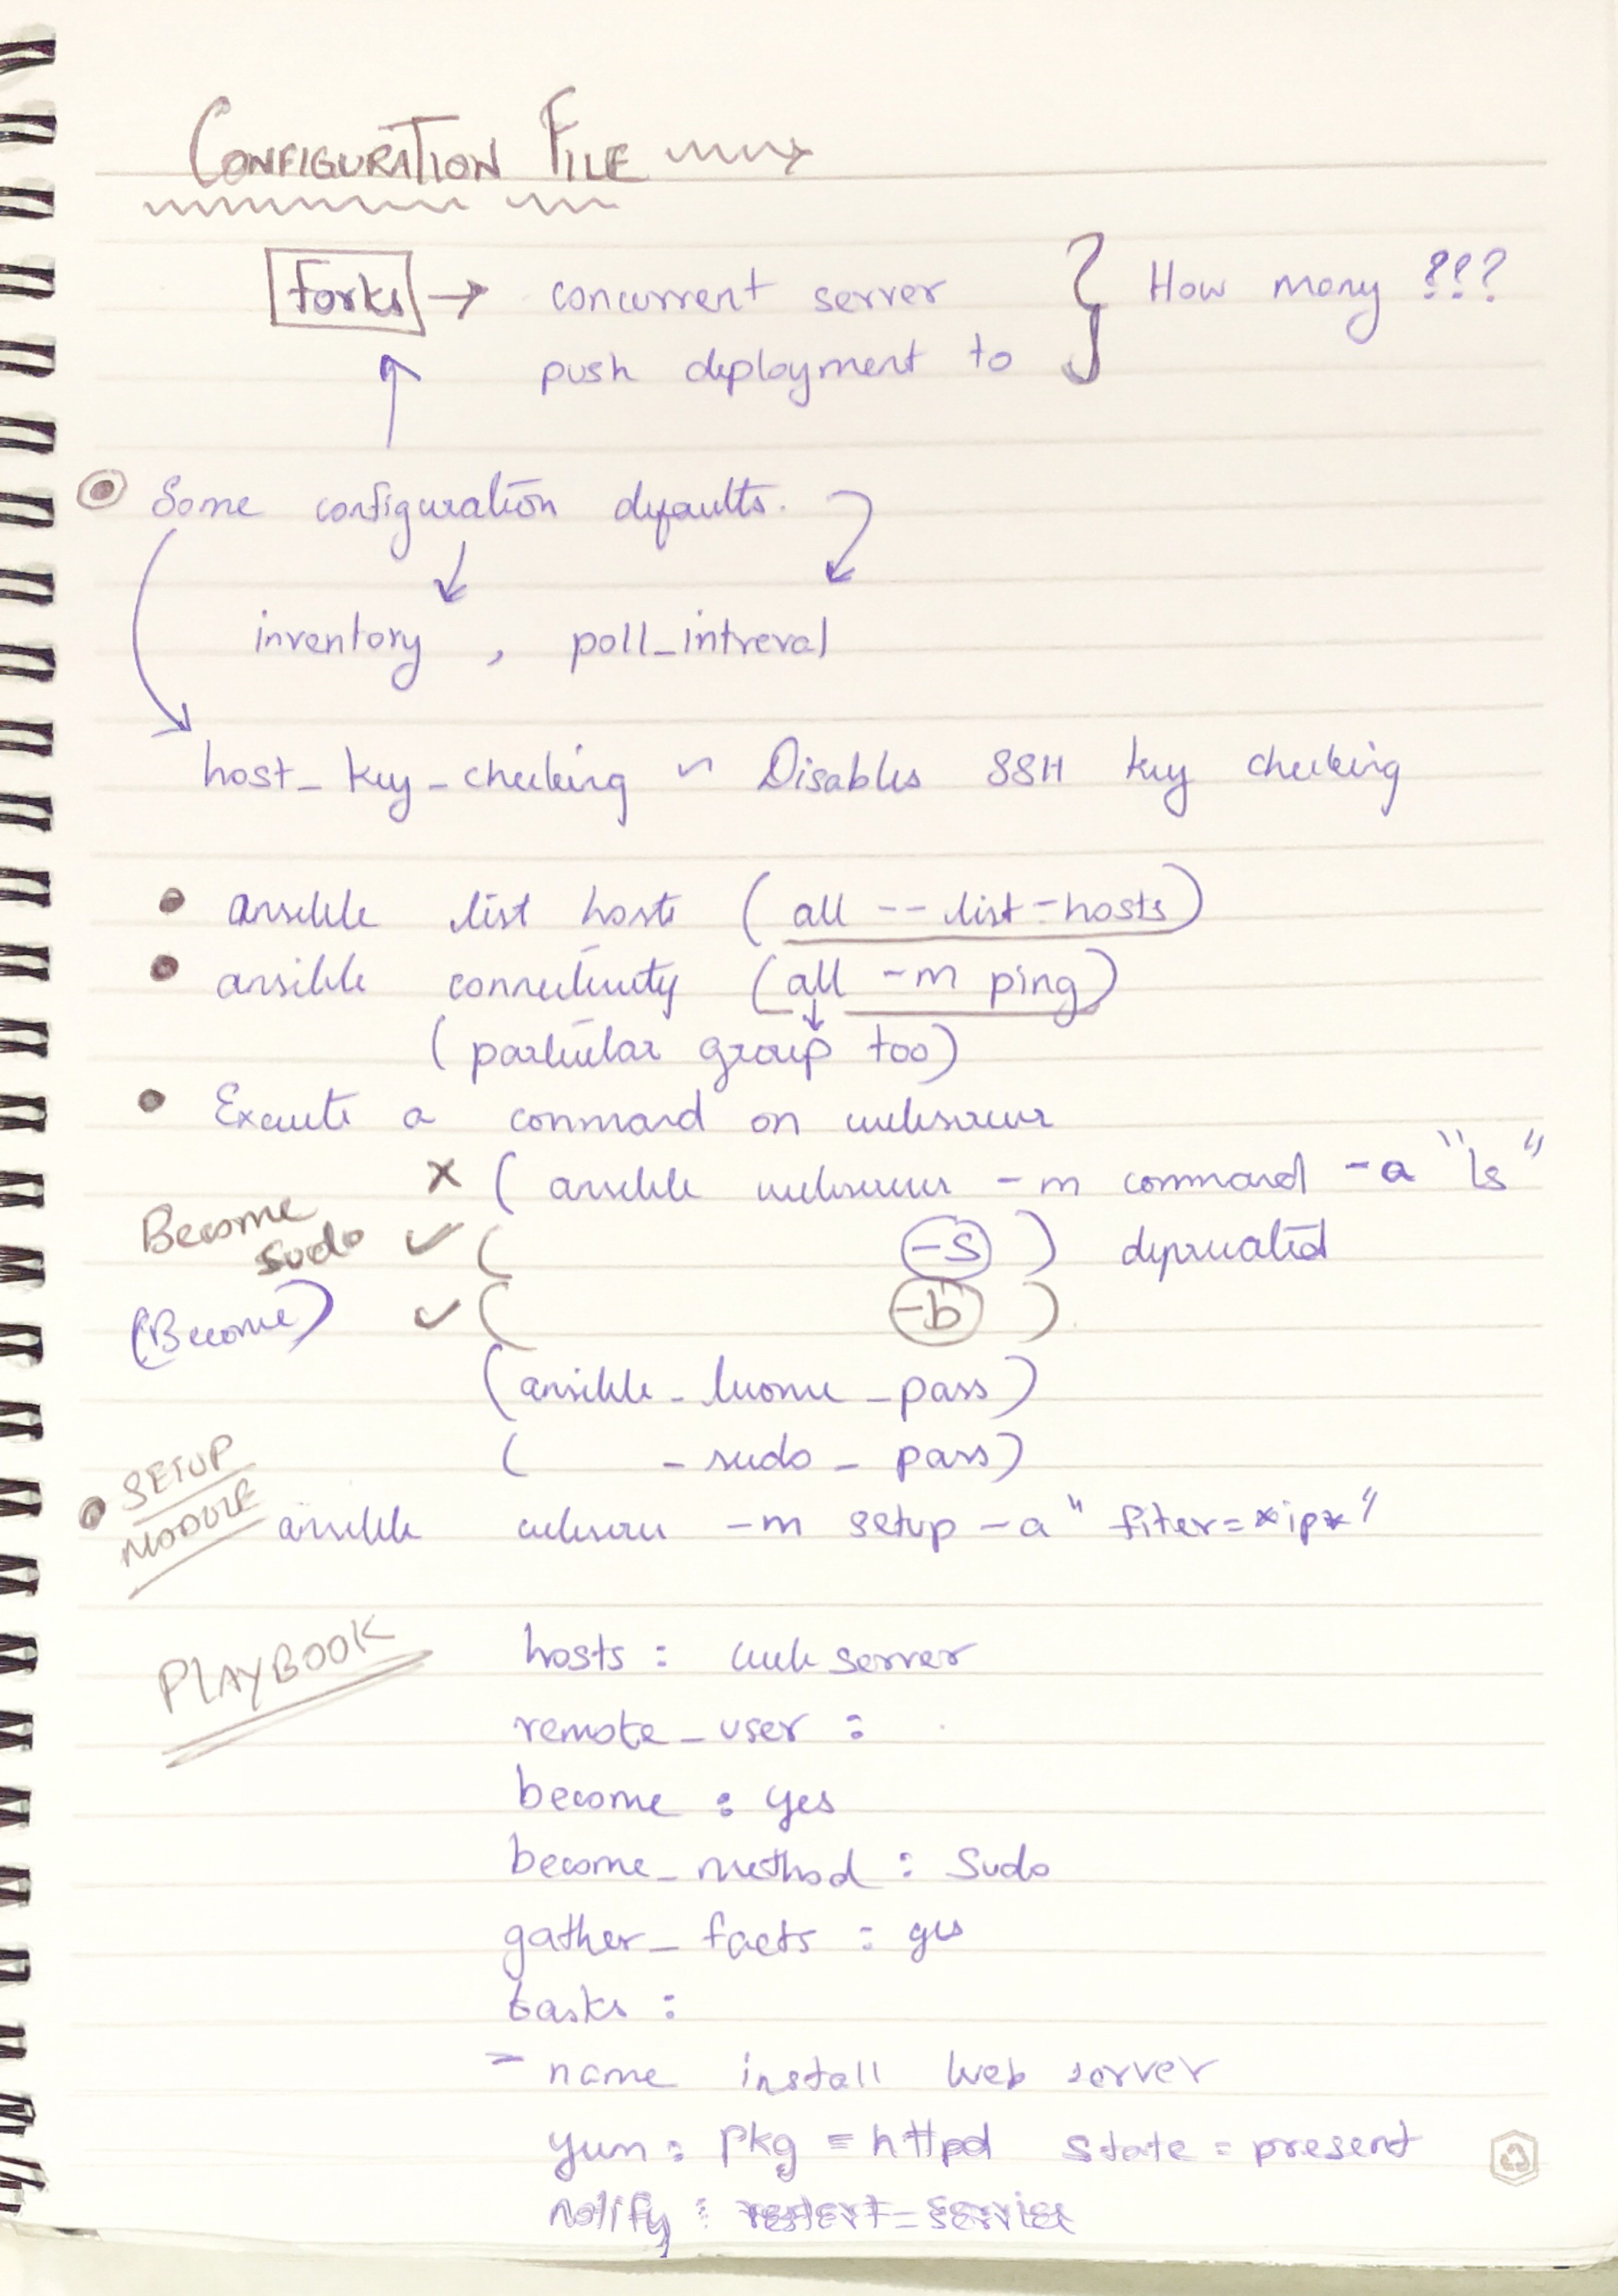 CONFIGURATION FILE
Forks → concurrent server } How many ???
push deployment to
Some configuration defaults.
inventory , poll_intreval
host_key_checking ~ Disables SSH key checking
ansible list hosts (all --list-hosts)
ansible connectivity (all -m ping)
(particular group too)
Execute a command on webserver
x (ansible webserver -m command -a "ls"
Become sudo ✓ ( -s ) deprecated
(Become) ✓ ( -b )
(ansible_become_pass)
( _sudo_pass)
SETUP
MODULE ansible webserver -m setup -a "fiter=*ip*"
PLAYBOOK
hosts : webserver
remote_user :
become : yes
become_method : Sudo
gather_facts : yes
tasks :
- name install web server
yum : pkg = httpd state = present
notify : restart = service